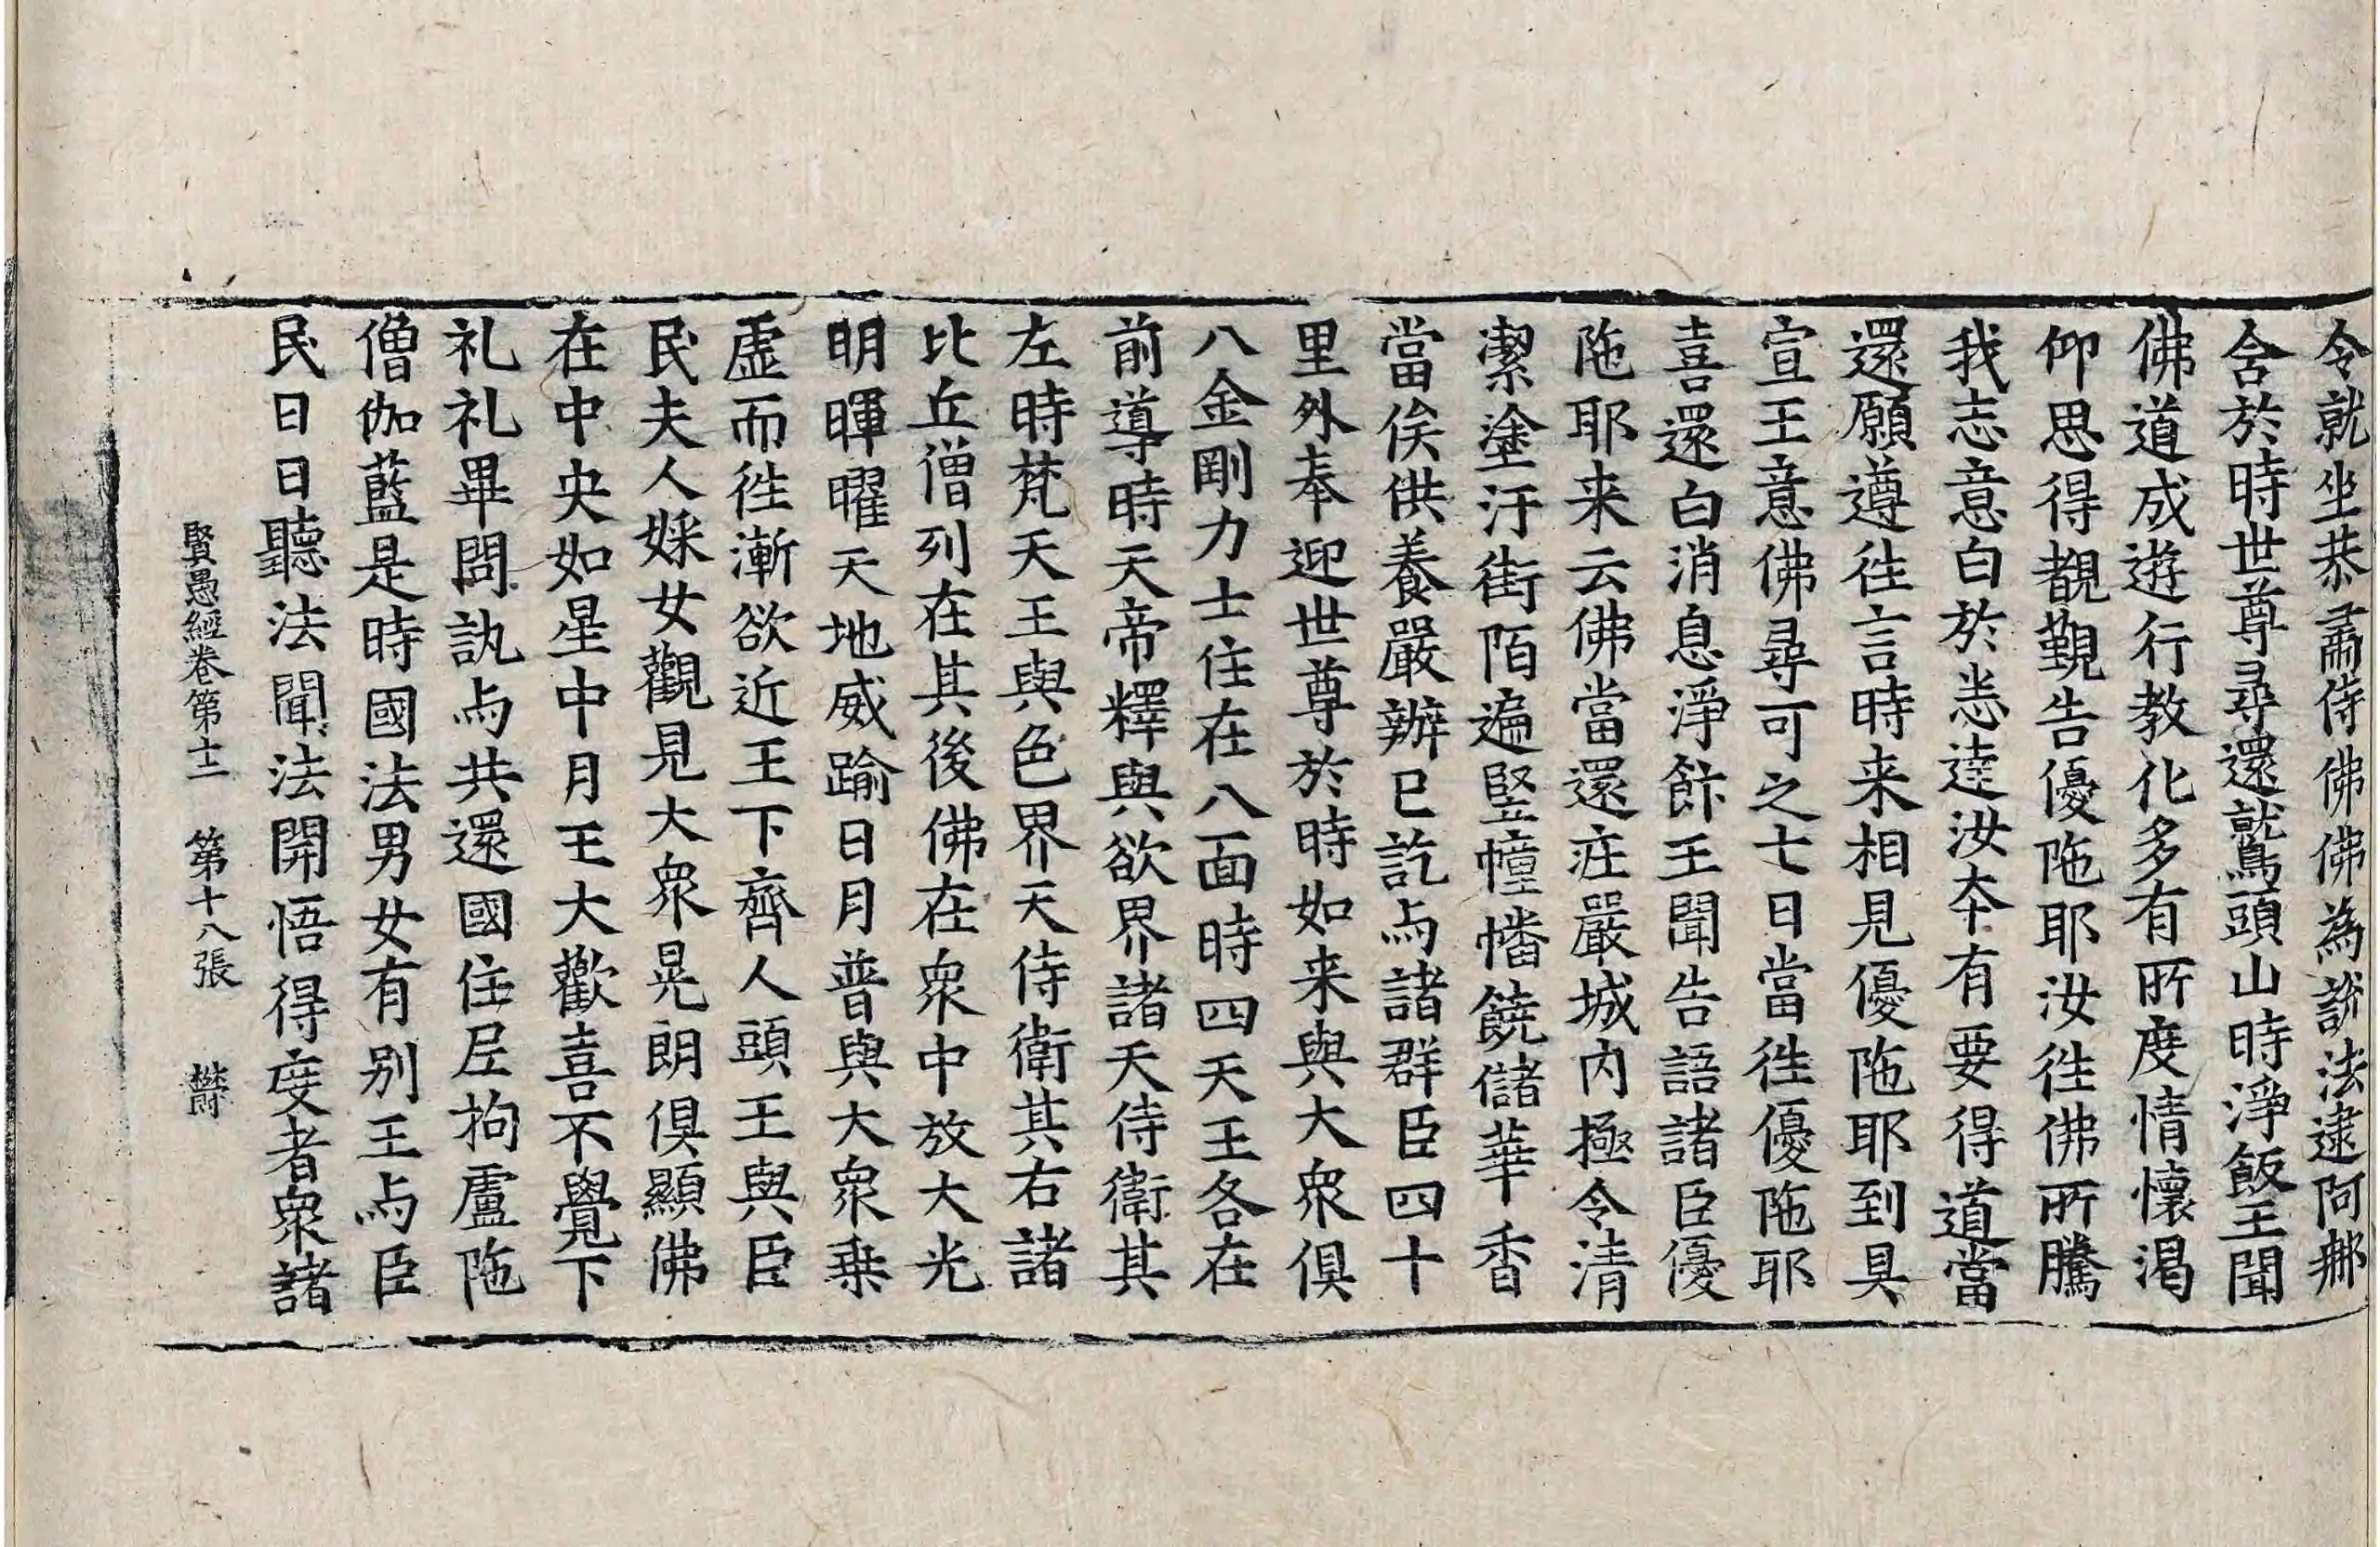 令就坐恭肅侍佛佛為說法逮阿那
含於時世尊尋還鷲頭山時淨飯王聞
佛道成遊行教化多有所度情懷渴
仰思得覩覲告優陁耶汝往佛所騰
我志意白於悉達汝夲有要得道當
還願遵往言時来相見優陁耶到具
宣王意佛尋可之七日當往優陁耶
喜還白消息淨飰王聞告語諸臣優
陁耶来云佛當還庄嚴城内極令清
潔塗汙街陌遍竪幢幡饒儲華香
當俟供養嚴辦已訖与諸群臣四十
里外奉迎世尊於時如来與大衆俱
八金剛力士住在八面時四天王各在
前導時天帝釋與欲界諸天侍衛其
左時梵天王與色界天侍衛其右諸
比丘僧列在其後佛在衆中放大光
明暉曜天地威踰日月普與大衆乗
虛而往漸欲近王下齊人頭王與臣
民夫人婇女觀見大衆晃朗俱顯佛
在中央如星中月王大歡喜不覺下
礼礼畢問訊与共還國住尼拘盧陁
僧伽藍是時國法男女有别王与臣
民日日聽法聞法開悟得度者衆諸
賢愚經卷第十二 第十八張 欝